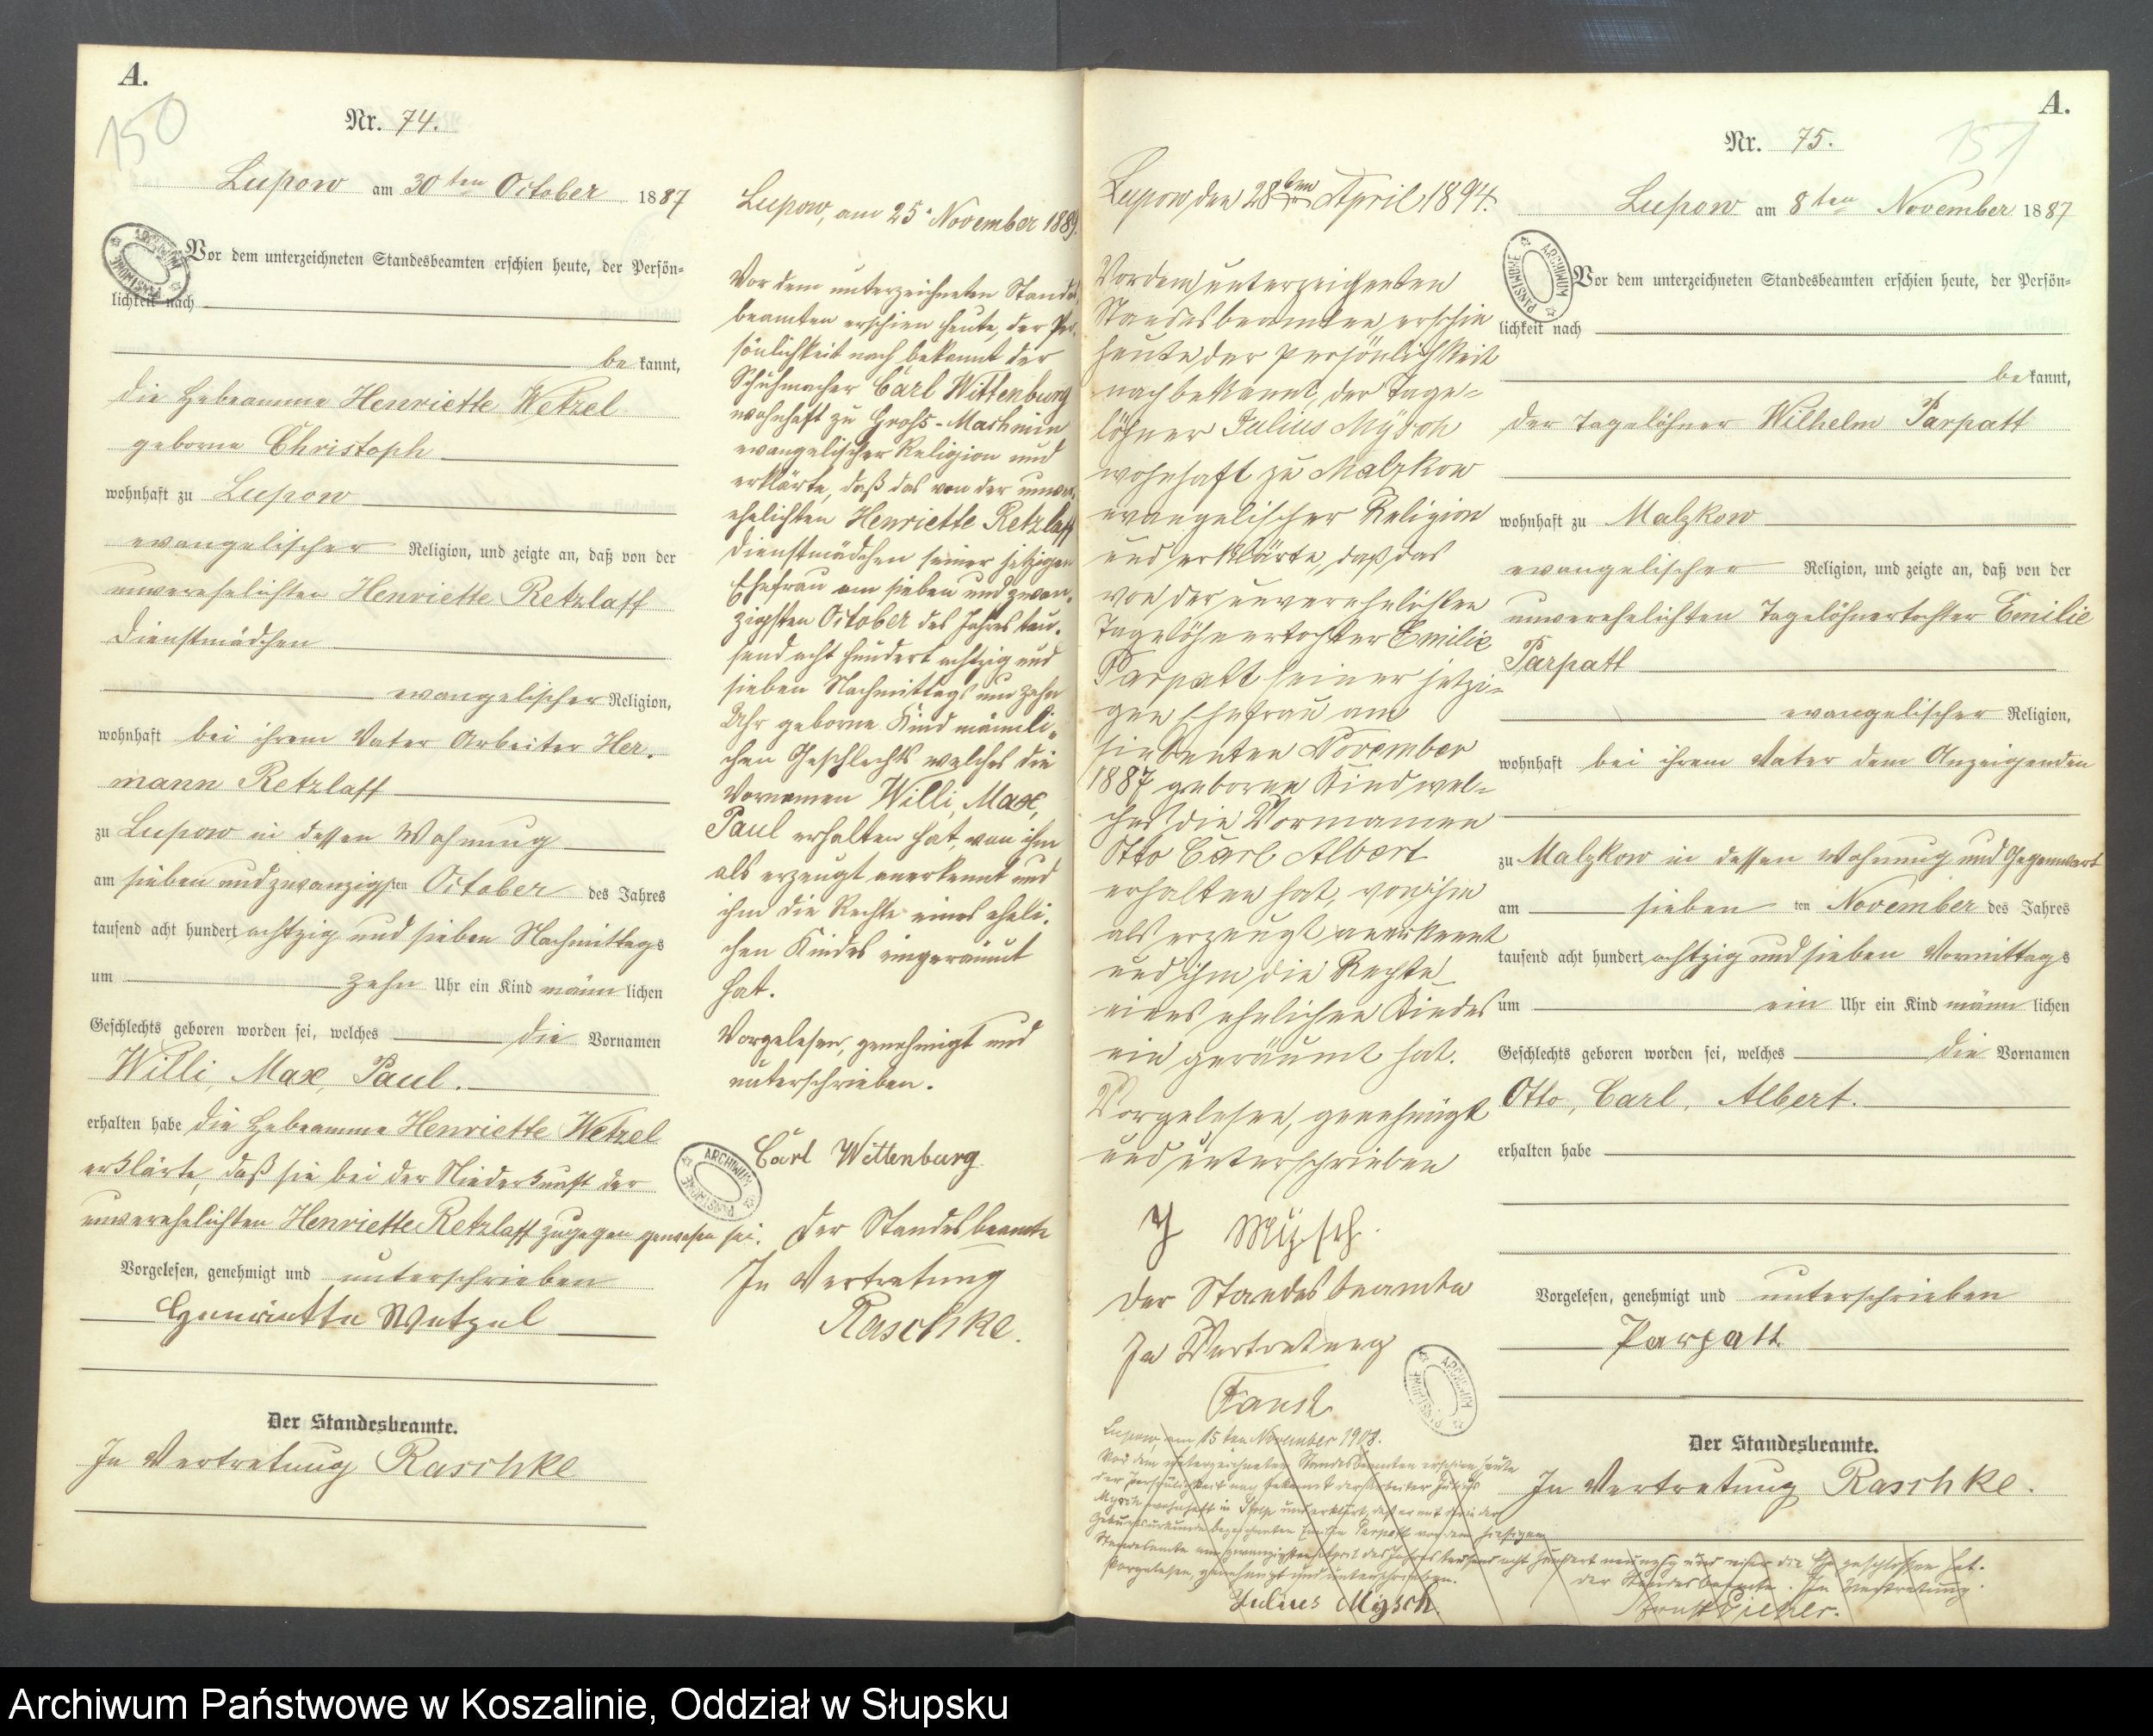 A.
150
Nr. 74.
Lupow am 30ten October 1887
Vor dem unterzeichneten Standesbeamten erschien heute, der Persön=
lichkeit nach
bekannt,
die Hebeamme Henriette Wetzel
geborne Christoph
wohnhaft zu Lupow
evangelischer Religion, und zeigte an, daß von der
unverehelichten Henriette Retzlaff
Dienstmädchen
evangelischer Religion,
wohnhaft bei ihrem Vater Arbeiter Her-
mann Retzlaff
zu Lupow in dessen Wohnung
am sieben und zwanzigsten October des Jahres
tausend acht hundert achtzig und sieben Nachmittags
um zehn Uhr ein Kind männlichen
Geschlechts geboren worden sei, welches die Vornamen
Willi, Max, Paul.
erhalten habe die Hebeamme Henriette Wetzel
erklärte, daß sie bei der Niederkunft der
unverehelichten Henriette Retzlaff zugegen gewesen sei.
Vorgelesen, genehmigt und unterschrieben
Henriette Wetzel
Der Standesbeamte.
In Vertretung Raschke
Lupow, am 25. November 1889.
Vor dem unterzeichneten Standes-
beamten erschien heute, der Per-
sönlichkeit nach bekannt der
Schuhmacher Carl Wittenburg
wohnhaft zu Groß-Machmin
evangelischer Religion und
erklärte, daß das von der unver-
ehelichten Henriette Retzlaff
Dienstmädchen seiner jetzigen
Ehefrau am sieben und zwan-
zigsten October des Jahres tau-
send acht hundert achtzig und
sieben Nachmittags um zehn
Uhr geborne Kind männli-
chen Geschlechts welches die
Vornamen Willi, Max,
Paul erhalten hat, von ihm
als erzeugt anerkennt und
ihm die Rechte eines eheli-
chen Kindes eingeräumt
hat.
Vorgelesen, genehmigt und
unterschrieben.
Carl Wittenburg.
Der Standesbeamte
In Vertretung
Raschke.
Lupow, den 28ten April 1894.
Vor dem unterzeichneten
Standesbeamten erschien
heute der Persönlichkeit
nach bekannt, der Tage=
löhner Julius Mysch
wohnhaft zu Malzkow
evangelischer Religion
und erklärte, daß das
von der unverehelichten
Tagelöhnertochter Emilie
Parpatt seiner jetzi-
gen Ehefrau am
siebenten November
1887 geborne Kind wel=
ches die Vornamen
Otto Carl Albert
erhalten hat, von ihm
als erzeugt anerkennt
und ihm die Rechte
eines ehelichen Kindes
ein geräumt hat.
Vorgelesen, genehmigt
und unterschrieben
J Mysch.
Der Standesbeamte
In Vertretung
Faust
Lupow, am 15ten November 1908.
Vor dem unterzeichneten Standesbeamten erschien heute
der Persönlichkeit nach bekannt der Arbeiter Julius
Mysch wohnhaft in Stolp und erklärt, daß er mit der in der
Geburtsurkunde bezeichneten Emilie Parpatt vor dem hiesigen
Standesamte am zwanzigsten April des Jahres tausend acht hundert neunzig und die Ehe geschlossen hat.
Vorgelesen, genehmigt und unterschrieben.
Der Standesbeamte. In Vertretung.
Julius Mysch.
A.
151
Nr. 75.
Lupow am 8ten November 1887
Vor dem unterzeichneten Standesbeamten erschien heute, der Persön=
lichkeit nach
bekannt,
der Tagelöhner Wilhelm Parpatt
wohnhaft zu Malzkow
evangelischer Religion, und zeigte an, daß von der
unverehelichten Tagelöhnertochter Emilie
Parpatt
evangelischer Religion,
wohnhaft bei ihrem Vater dem Anzeigenden
zu Malzkow in dessen Wohnung und Gegenwart
am sieben ten November des Jahres
tausend acht hundert achtzig und sieben Vormittags
um ein Uhr ein Kind männlichen
Geschlechts geboren worden sei, welches die Vornamen
Otto, Carl, Albert.
erhalten habe
Vorgelesen, genehmigt und unterschrieben
Parpatt
Der Standesbeamte.
In Vertretung Raschke.
ARCHIWUM PAŃSTWOWE
ARCHIWUM PAŃSTWOWE
ARCHIWUM PAŃSTWOWE
ARCHIWUM PAŃSTWOWE
Archiwum Państwowe w Koszalinie, Oddział w Słupsku